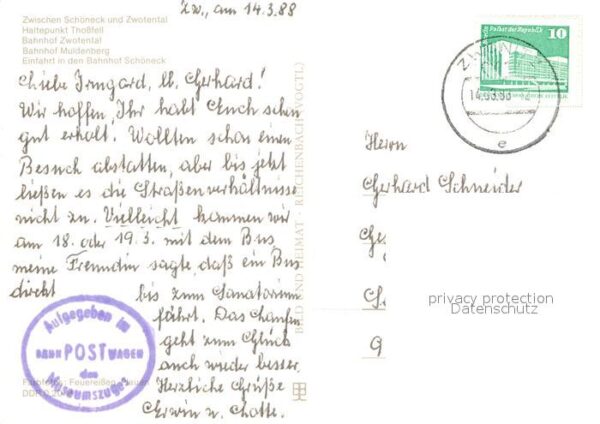 Zw., am 14.3.88
Zwischen Schöneck und Zwotental
Haltepunkt Thoßfell
Bahnhof Zwotental
Bahnhof Muldenberg
Einfahrt in den Bahnhof Schöneck
Liebe Irmgard, lb. Gerhard!
Wir hoffen, Ihr habt Euch schon
gut erholt. Wollten schon einen
Besuch abstatten, aber bis jetzt
ließen es die Straßenverhältnisse
nicht zu. Vielleicht kommen wir
am 18. oder 19.3. mit dem Bus
meine Freundin sagte, daß ein Bus
direkt bis zum Sanatorium
fährt. Das Laufen
geht zum Glück
auch wieder besser.
Herzliche Grüße
Erwin u. Lotte.
Aufgegeben im
BAHNPOSTWAGEN
des
Museumszuges
BILD UND HEIMAT · REICHENBACH (VOGTL)
Palast der Republik
10
14.03.88
e
Herrn
Gerhard Schneider
privacy protection
Datenschutz